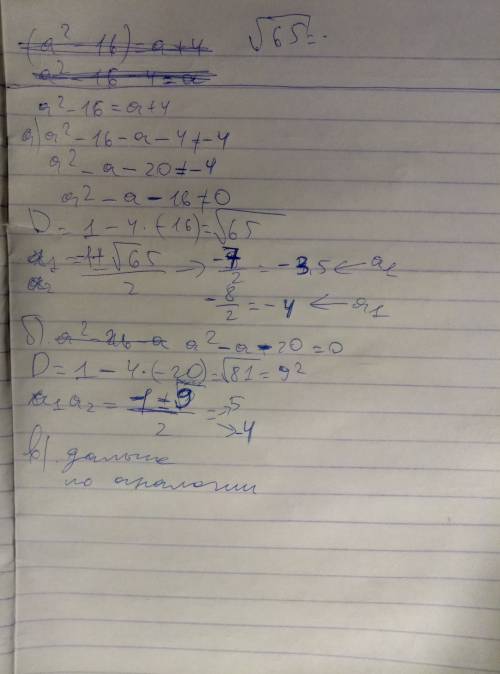 (a² - 16) = a + 4
√65 = .
a² - 16 - 4 = a
a² - 16 = a + 4
а) a² - 16 - a - 4 ≠ -4
a² - a - 20 ≠ -4
a² - a - 16 ≠ 0
D = 1 - 4 · (-16) = √65
a₁ a₂ = -1 ± √65 / 2 → -7/2 = -3,5 ← a₂
-8/2 = -4 ← a₁
б) a² - a - 20 = 0
D = 1 - 4 · (-20) = √81 = 9²
a₁ a₂ = -1 ± 9 / 2 = 5
→ -4
в) дальше
по аналогии